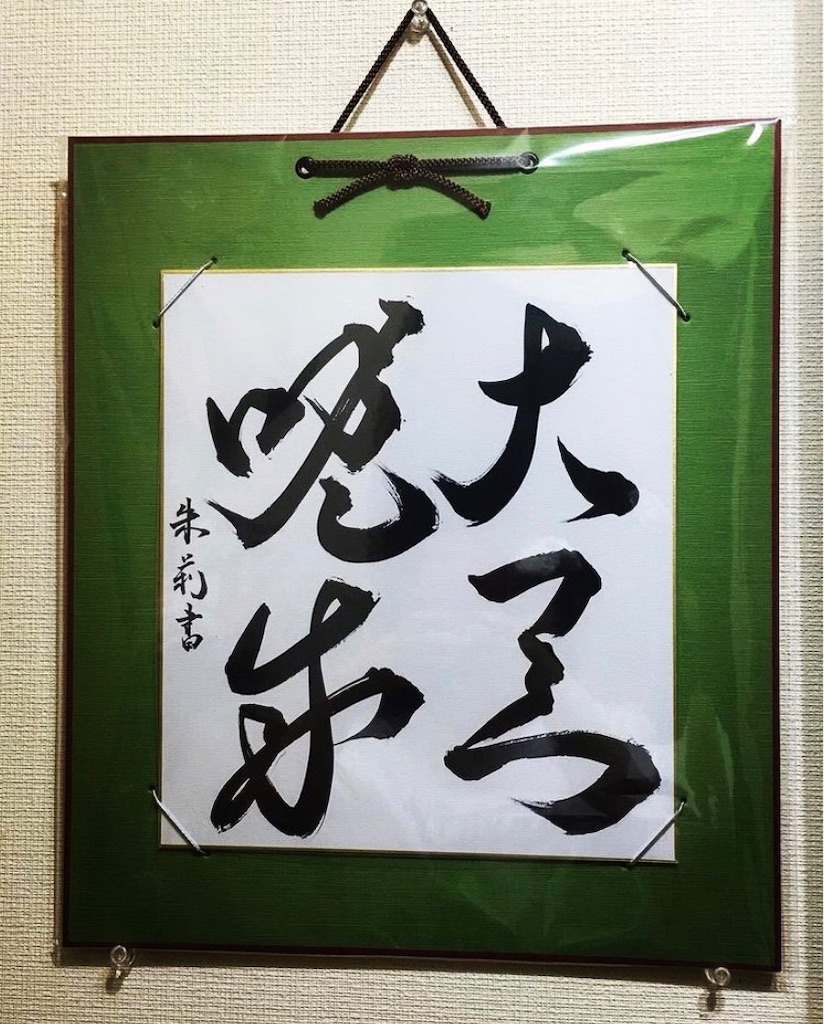 大器
晩成
朱莉書